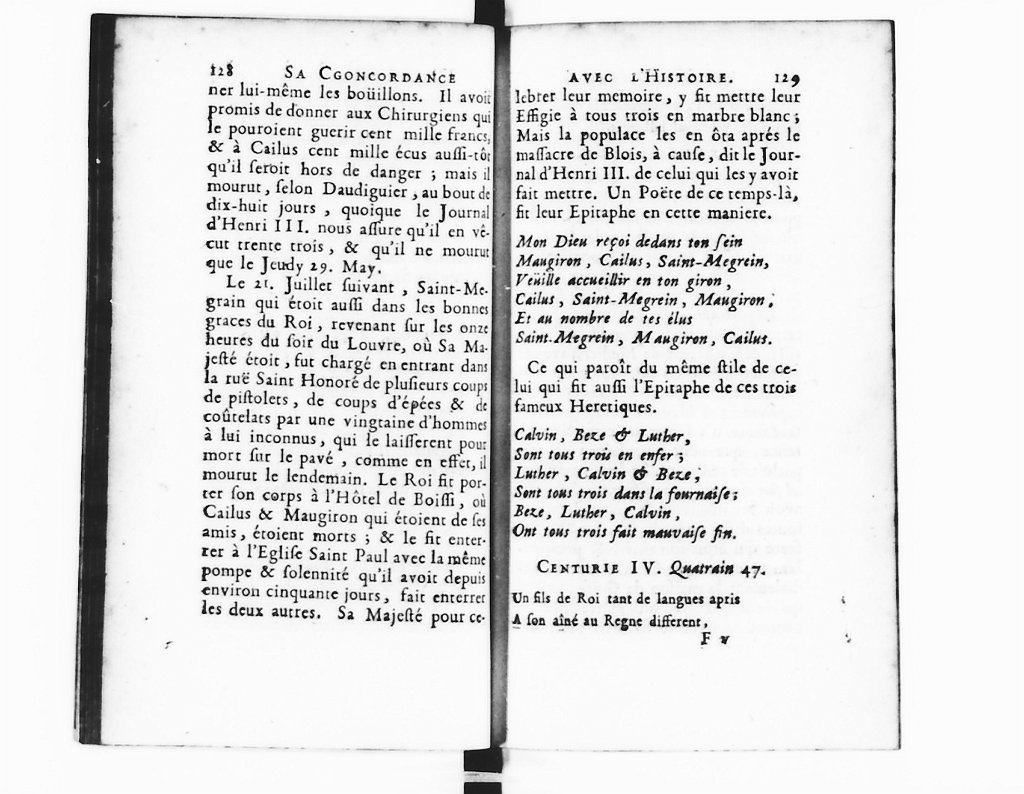 128 SA CGONCORDANCE
ner lui-même les boüillons. Il avoit
promis de donner aux Chirurgiens qui
le pouroient guerir cent mille francs,
& à Cailus cent mille écus auſſi-tôt
qu'il ſeroit hors de danger ; mais il
mourut, ſelon Daudiguier, au bout de
dix-huit jours, quoique le Journal
d'Henri III. nous aſſure qu'il en vê-
cut trente trois, & qu'il ne mourut
que le Jeudy 29. May.
Le 21. Juillet ſuivant, Saint-Me-
grain qui étoit auſſi dans les bonnes
graces du Roi, revenant ſur les onze
heures du ſoir du Louvre, où Sa Ma-
jeſté étoit, fut chargé en entrant dans
la ruë Saint Honoré de pluſieurs coups
de piſtolets, de coups d'épées & de
coûtelats par une vingtaine d'hommes
à lui inconnus, qui le laiſſerent pour
mort ſur le pavé, comme en effet, il
mourut le lendemain. Le Roi fit por-
ter ſon corps à l'Hôtel de Boiſſi, où
Cailus & Maugiron qui étoient de ſes
amis, étoient morts ; & le fit enter-
rer à l'Egliſe Saint Paul avec la même
pompe & ſolennité qu'il avoit depuis
environ cinquante jours, fait enterrer
les deux autres. Sa Majeſté pour ce-
AVEC L'HISTOIRE. 129
lebrer leur memoire, y fit mettre leur
Effigie à tous trois en marbre blanc ;
Mais la populace les en ôta aprés le
maſſacre de Blois, à cauſe, dit le Jour-
nal d'Henri III. de celui qui les y avoit
fait mettre. Un Poëte de ce temps-là,
fit leur Epitaphe en cette maniere.
Mon Dieu reçoi dedans ton ſein
Maugiron, Cailus, Saint-Megrein,
Veüille accueillir en ton giron,
Cailus, Saint-Megrein, Maugiron,
Et au nombre de tes élus
Saint-Megrein, Maugiron, Cailus.
Ce qui paroît du même ſtile de ce-
lui qui fit auſſi l'Epitaphe de ces trois
fameux Heretiques.
Calvin, Beze & Luther,
Sont tous trois en enfer ;
Luther, Calvin & Beze,
Sont tous trois dans la fournaiſe ;
Beze, Luther, Calvin,
Ont tous trois fait mauvaiſe fin.
CENTURIE IV. Quatrain 47.
Un fils de Roi tant de langues apris
A ſon aîné au Regne different,
F v